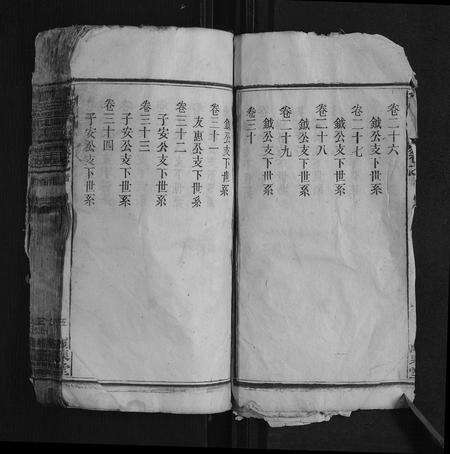 卷二十六
鉞公支下世系
卷二十七
鉞公支下世系
卷二十八
鉞公支下世系
卷二十九
鉞公支下世系
卷三十
鉞公支下世系
卷三十一
友惠公支下世系
卷三十二
子安公支下世系
卷三十三
子安公支下世系
卷三十四
子安公支下世系